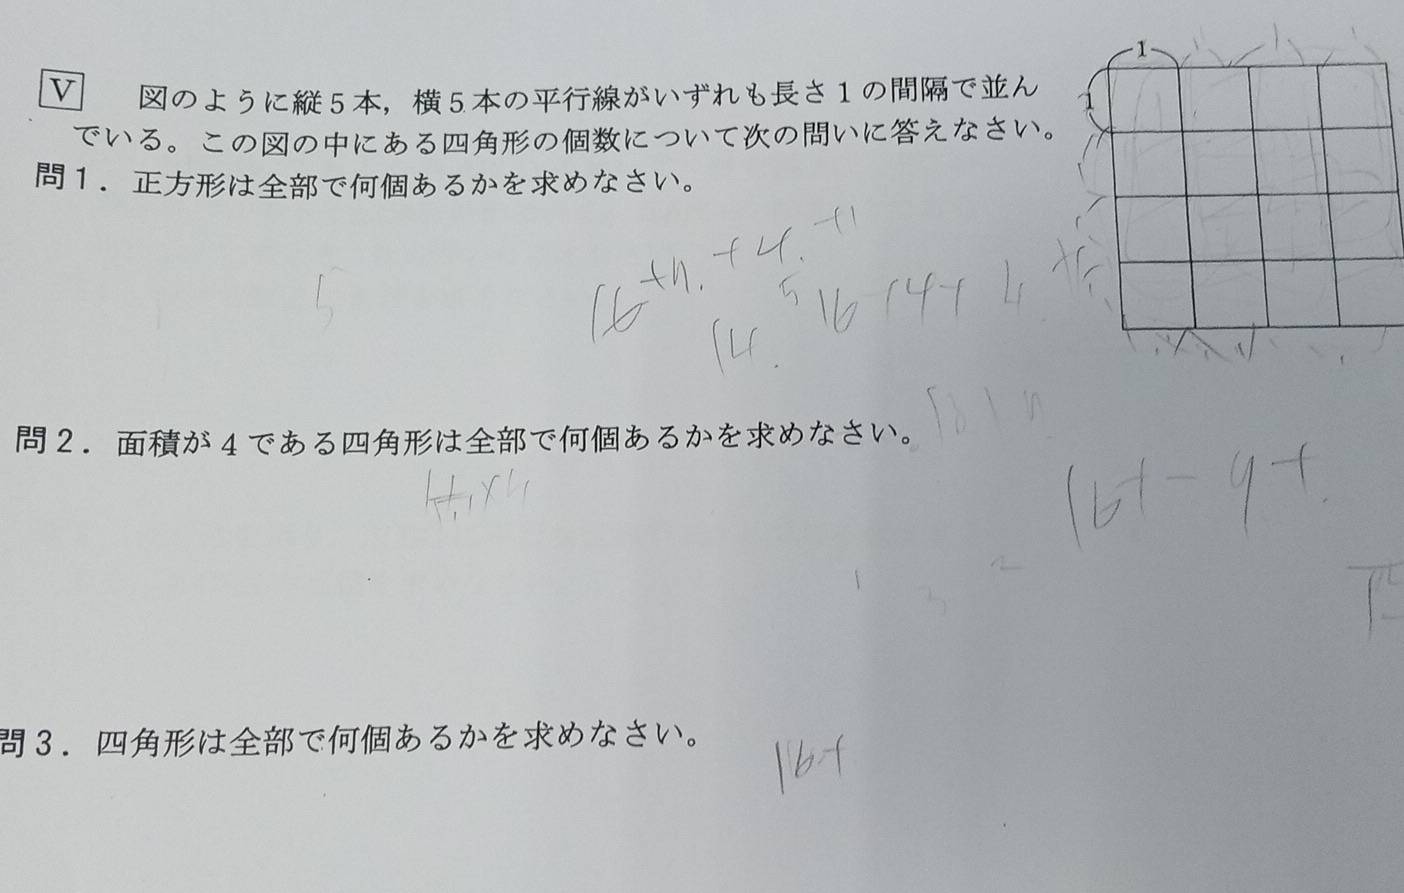 V 図のように縦5本，横5本の平行線がいずれも長さ1の間隔で並ん
でいる。この図の中にある四角形の個数について次の問いに答えなさい。
1
1
問1．正方形は全部で何個あるかを求めなさい。
5
16+4.+4.+1
5
16+4+4
14.
問2．面積が4である四角形は全部で何個あるかを求めなさい。
16+-9+
1
3
2
問3．四角形は全部で何個あるかを求めなさい。
16+